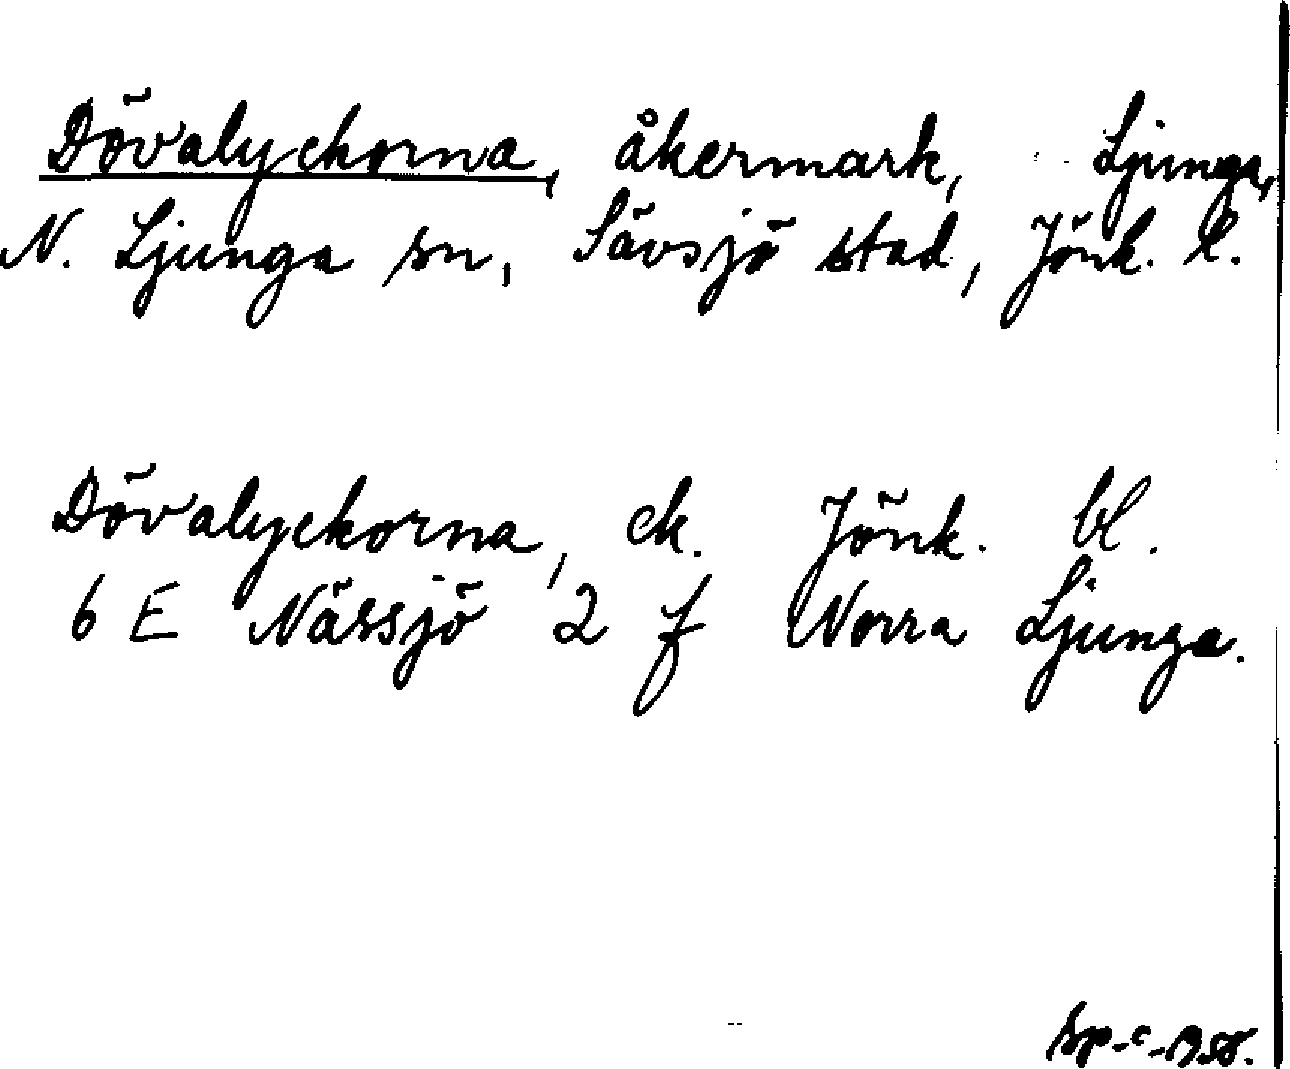 Dövalyckorna, åkermark, Ljunga,
N. Ljunga sn, Sävsjö stad, Jönk. l.
Dövalyckorna, ek. Jönk. bl.
6 E Nässjö 2 f Norra Ljunga.